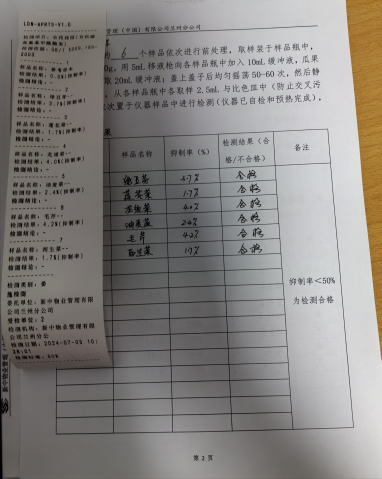 LDW-APRTS-V1.0
检测依据: GB/T 5009.199-2003
1
检测结果: 0.0%(抑制率)
检测结论: -
2
检测结果: 3.7%(抑制率)
检测结论: -
3
检测结果: 1.7%(抑制率)
检测结论: -
4
样品名称: 龙须菜--
检测结果: 4.0%(抑制率)
检测结论: -
5
样品名称: 油麦菜--
检测结果: 2.4%(抑制率)
检测结论: -
6
样品名称: 毛芹--
检测结果: 4.2%(抑制率)
检测结论: -
7
样品名称: 西生菜--
检测结果: 1.7%(抑制率)
检测结论: -
检测类别: 委
托检测
委托单位: 新中物业管理有限
公司兰州分公司
受检单位: 2
检测机构: 新中物业管理有限
公司兰州分公
检测日期: 2024-07-09 10:
管理(中国)有限公司兰州分公司
的 6 个样品依次进行前处理，取样装于样品瓶中，
0g，用 5mL 移液枪向各样品瓶中加入 10mL 缓冲液，瓜果
取 20mL 缓冲液；盖上盖子后均匀摇荡 50-60 次，然后静
，从各样品瓶中各取样 2.5mL 与比色皿中（防止交叉污
次置于仪器样品中进行检测（仪器已自检和预热完成）。
果
样品名称 抑制率（%） 检测结果（合格/不合格） 备注
3.7% 合格
1.7% 合格
龙须菜 4.0% 合格
油麦菜 2.4% 合格
毛芹 4.2% 合格
西生菜 1.7% 合格
抑制率<50%
为检测合格
第 2 页